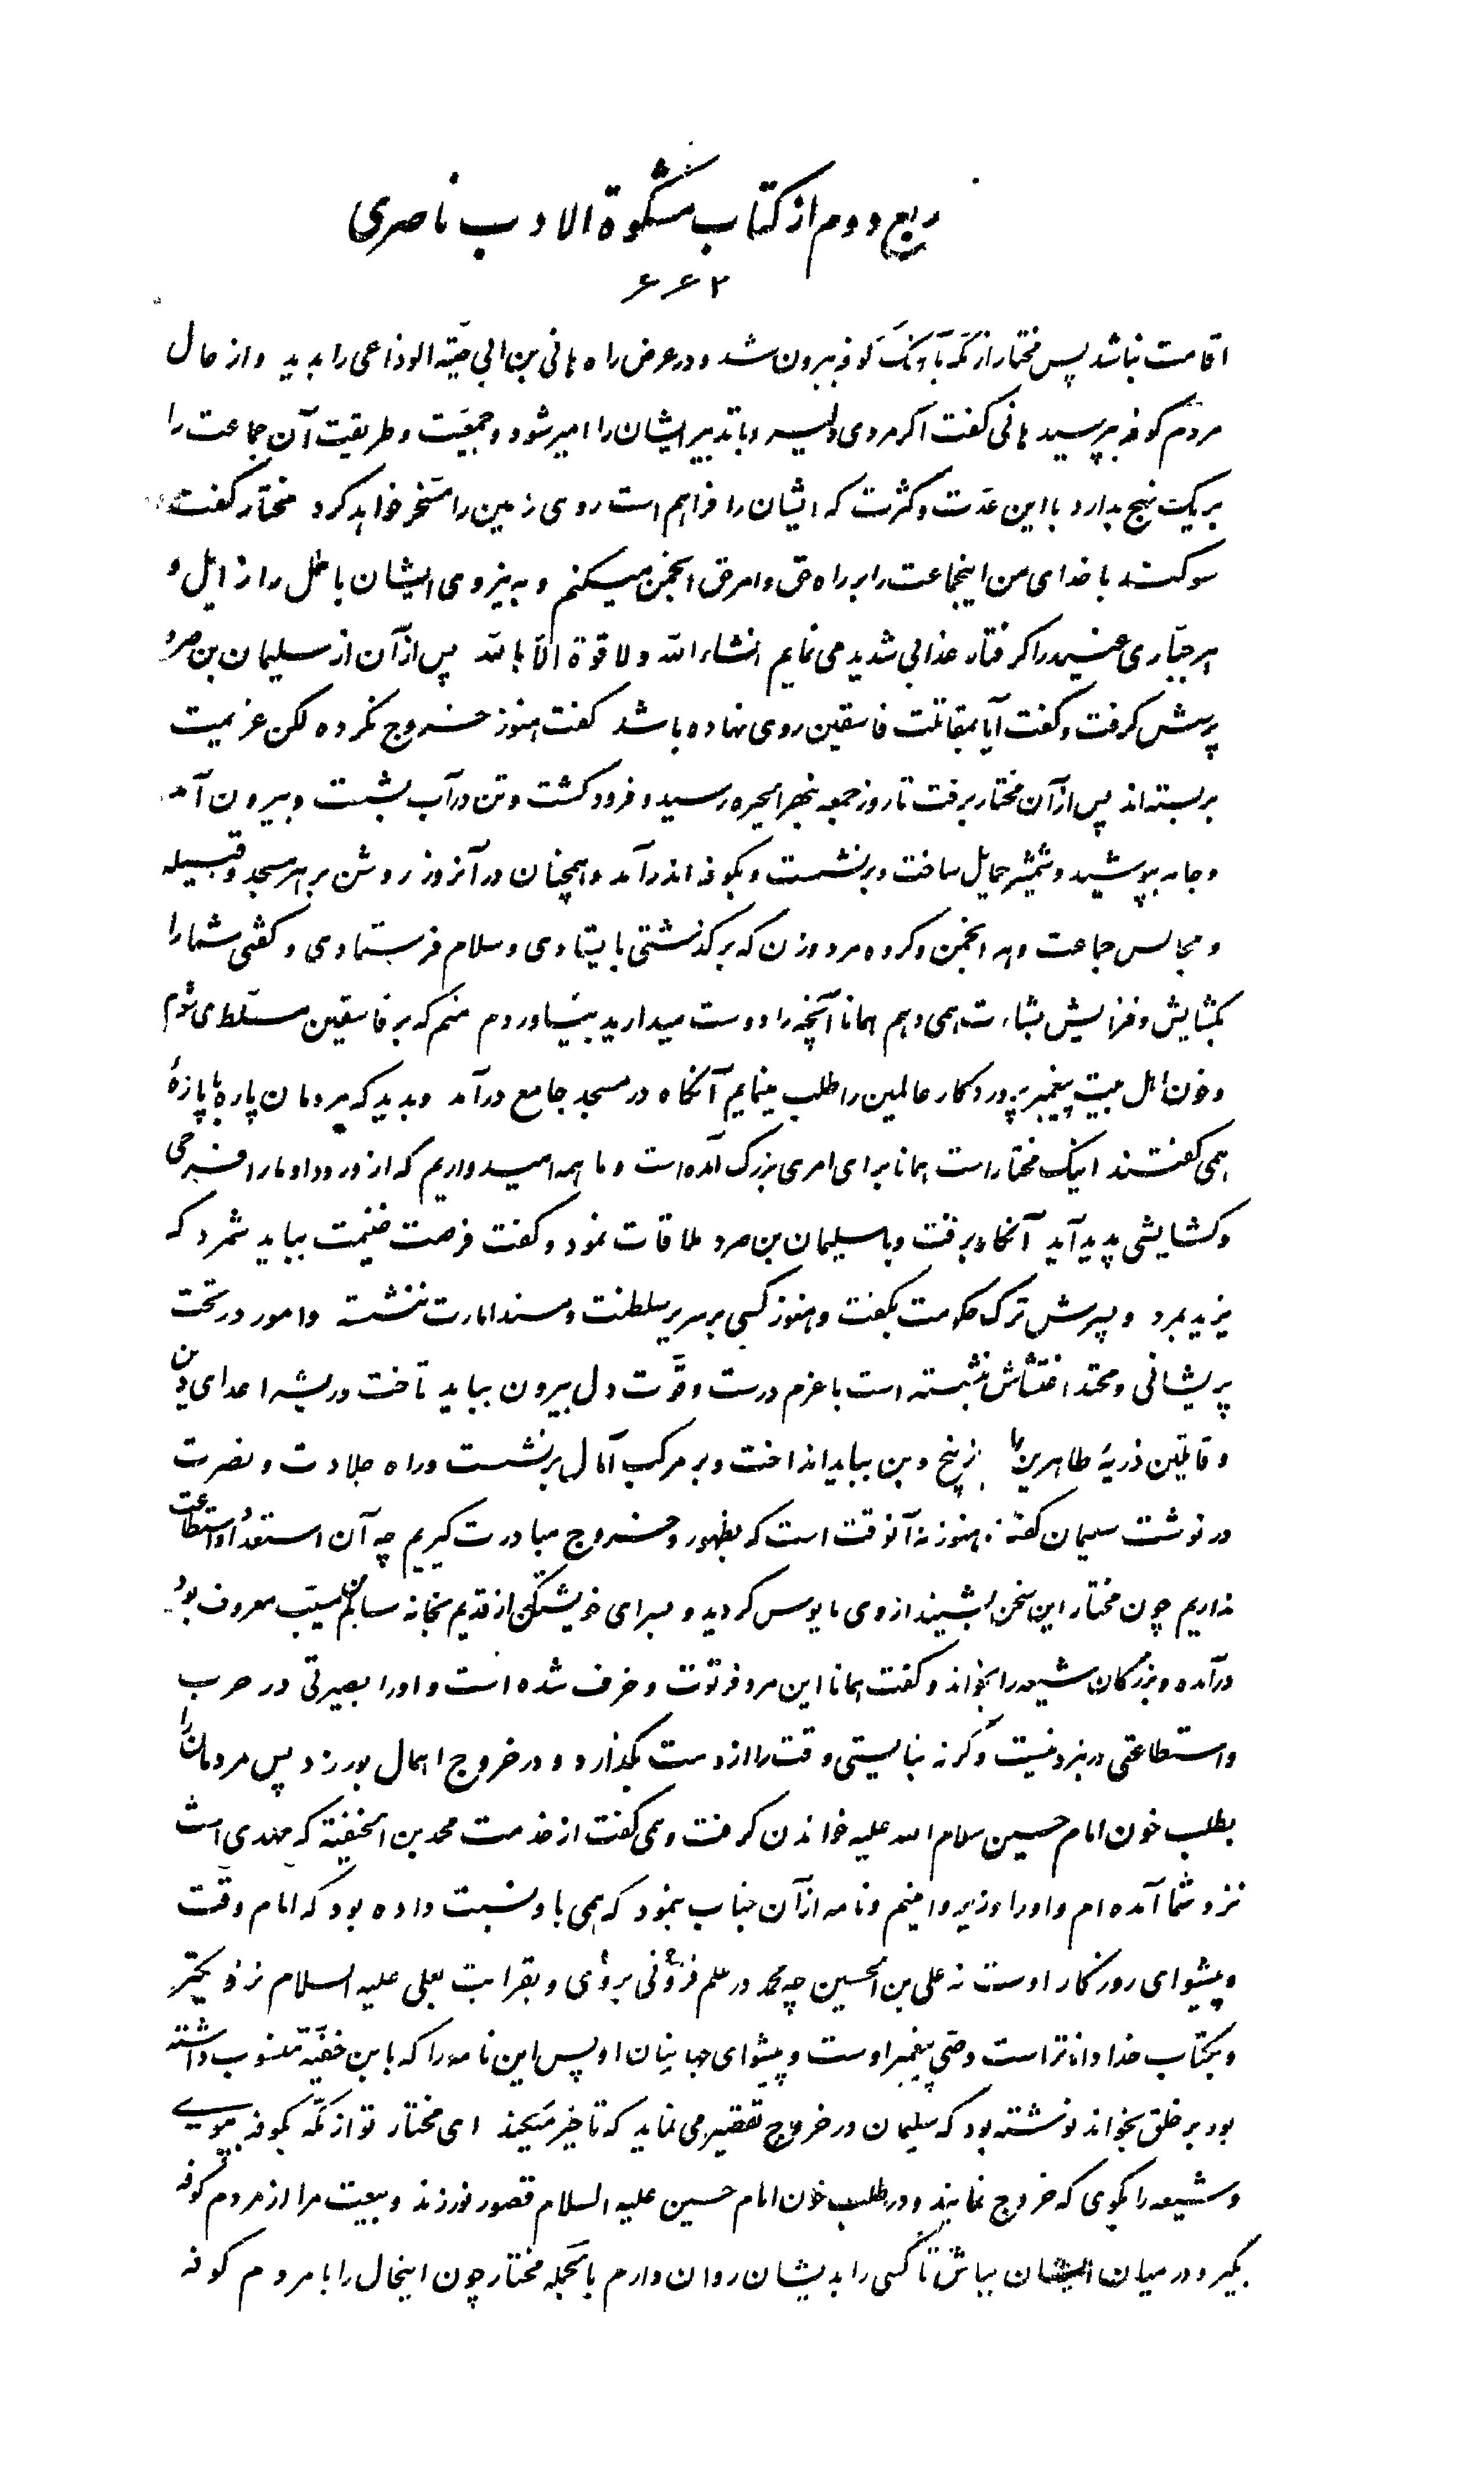 ربع دوم از کتاب مشکوة الادب ناصری
۶۶۲
اقامت نباشد پس مختار از مکّه بآهنگ کوفه بیرون شد و در عرض راه هانی بن ابی حیّة الوذاعی را بدید و از حال
مردم کوفه بپرسید هانی گفت اگر مردی دلیر و با تدبیر ایشان را امیر شود و جمعیّت و طریقت آن جماعت را
بر یک نهج بدارد با این عدّت و کثرت که ایشان را فراهم است روی زمین را مسخّر خواهد کرد مختار گفت
سوگند با خدای من اینجماعت را بر راه حق و امر حق انجمن میکنم و به نیروی ایشان باطل را زایل و
هر جبّاری عنید را گرفتار عذابی شدید می نمایم انشاء الله و لا قوّة الّا بالله پس از آن از سلیمان بن صرد
پرسش گرفت و گفت آیا بمقاتلت فاسقین روی نهاده باشد گفت هنوز خروج نکرده لکن عزیمت
بر بسته اند پس از آن مختار برفت تا روز جمعه بنهر الحیره رسید و فرود گشت و تن در آب بشست و بیرون آمد
و جامه بپوشید و شمشیر حمایل ساخت و برنشست و بکوفه اندر آمد و همچنان در آنروز روشن بر هر مسجد و قبیله
و مجالس جماعت و هر انجمن و گروه مرد و زن که برگذشتی بایستادی و سلام فرستادی و گفتی شما را
بگشایش و فزایش بشارت همی دهم همانا آنچه را دوست میدارید بیاوردم منم که بر فاسقین مسلّط می شوم
و خون اهل بیت پیغمبر پروردگار عالمین را طلب مینمایم آنگاه در مسجد جامع درآمد و بدید که مردمان پاره با پارهٔ
همی گفتند اینک مختار است همانا برای امری بزرگ آمده است و ما همه امیدواریم که از ورود او ما را فرجی
و گشایشی پدید آید آنگاه برفت و با سلیمان بن صرد ملاقات نمود و گفت فرصت غنیمت بباید شمرد که
یزید بمرد و پسرش ترک حکومت بگفت و هنوز کسی بر سریر سلطنت و مسند امارت ننشسته و امور در تحت
پریشانی و اغتشاش نشسته است با عزم درست و قوّت دل بیرون بباید تاخت و ریشه اعدای دین
و قاتلین ذریهٔ طاهرین را از بیخ و بن بباید انداخت و بر مرکب آمال برنشست و راه جلادت و نصرت
در نوشت سلیمان گفت هنوز نه آنوقت است که بظهور و خروج مبادرت گیریم چه آن استعداد و استطاعت
نداریم چون مختار این سخن بشنید از وی مایوس گردید و بسرای خویشتن که از قدیم بخانه سالم بن مسیّب معروف بود
درآمده و بزرگان شیعه را بخواند و گفت همانا این مرد فرتوت و خرف شده است و او را بصیرتی در حرب
و استطاعتی در نبرد نیست و گرنه نبایستی وقت را از دست بگذارد و در خروج اهمال بورزد پس مردمان را
بطلب خون امام حسین سلام الله علیه خواندن گرفت و همی گفت از خدمت محمد بن الحنفیّة که مهدی است
نزد شما آمده ام و او را وزیر و امینم و نامه از آن جناب بنمود که همی باو نسبت داده بود که امام وقت
و پیشوای روزگار اوست نه علی بن الحسین چه محمد در علم فزونی بر وی و بقرابت بعلی علیه السلام نزدیکتر
و بکتاب خدا داناتر است وصّی پیغمبر اوست و پیشوای جهانیان او پس این نامه را که بابن حنفیّه منسوب داشته
بود بر خلق بخواند نوشته بود که سلیمان در خروج تقصیر می نماید که تاخیر میکند ای مختار تو از مکّه بکوفه میروی
و شیعه را بگوی که خروج نمایند و در طلب خون امام حسین علیه السلام قصور نورزند و بیعت مرا از مردم کوفه
بگیر و در میان ایشان بباش تا کسی را بدیشان روان دارم بالجمله مختار چون اینحال را با مردم کوفه